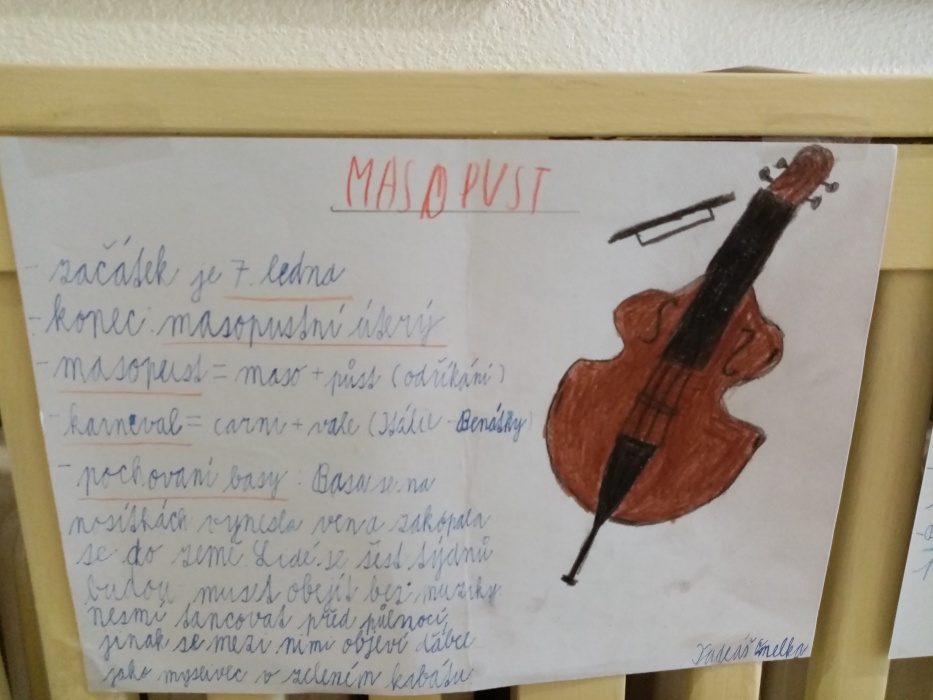 MASOPUST
- začátek je 7. ledna
- konec: masopustní úterý
- masopust = maso + půst (odříkání)
- karneval = carni + vale (Itálie - Benátky)
- pochovaní basy: Basa se na
nosítkách vynesla ven a zakopala
se do země. Lidé se šest týdnů
budou muset obejít bez muziky.
nesmí tancovat před půlnocí,
jinak se mezi nimi objeví ďábel
jako myslivec v zeleném kabátu.
Tadeáš